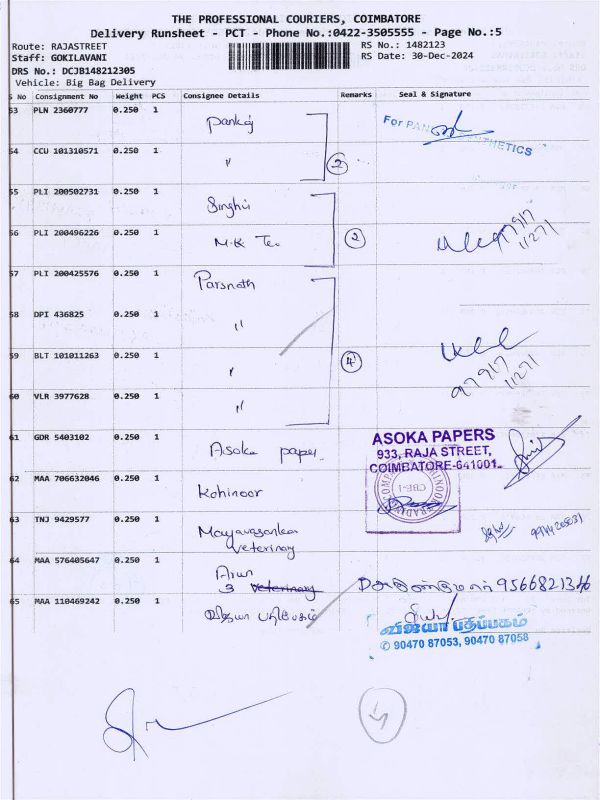 THE PROFESSIONAL COURIERS, COIMBATORE
Delivery Runsheet - PCT - Phone No.:0422-3505555 - Page No.:5
Route: RAJASTREET RS No.: 1482123
Staff: GOKILAVANI RS Date: 30-Dec-2024
DRS No.: DCJB148212305
Vehicle: Big Bag Delivery
No Consignment No Weight PCS Consignee Details Remarks Seal & Signature
53 PLN 2360777 0.250 1 Pankaj For
54 CCU 101310571 0.250 1 〃 2
55 PLI 200502731 0.250 1 Singhvi
56 PLI 200496226 0.250 1 M.K Tex 2 97917 11271
57 PLI 200425576 0.250 1 Parsnath
58 DPI 436825 0.250 1 〃
59 BLT 101011263 0.250 1 〃 4 97917 11271
60 VLR 3977628 0.250 1 〃
61 GDR 5403102 0.250 1 Asoka paper ASOKA PAPERS
933, RAJA STREET,
COIMBATORE-641001.
62 MAA 706632046 0.250 1 Kohinoor CBE-1
63 TNJ 9429577 0.250 1 Mayavasankar
veterinary
64 MAA 576405647 0.250 1 Arun
3 veterinary 9566821346
65 MAA 110469242 0.250 1 விஜயா பதிப்பகம்
விஜயா பதிப்பகம்
✆ 90470 87053, 90470 87058